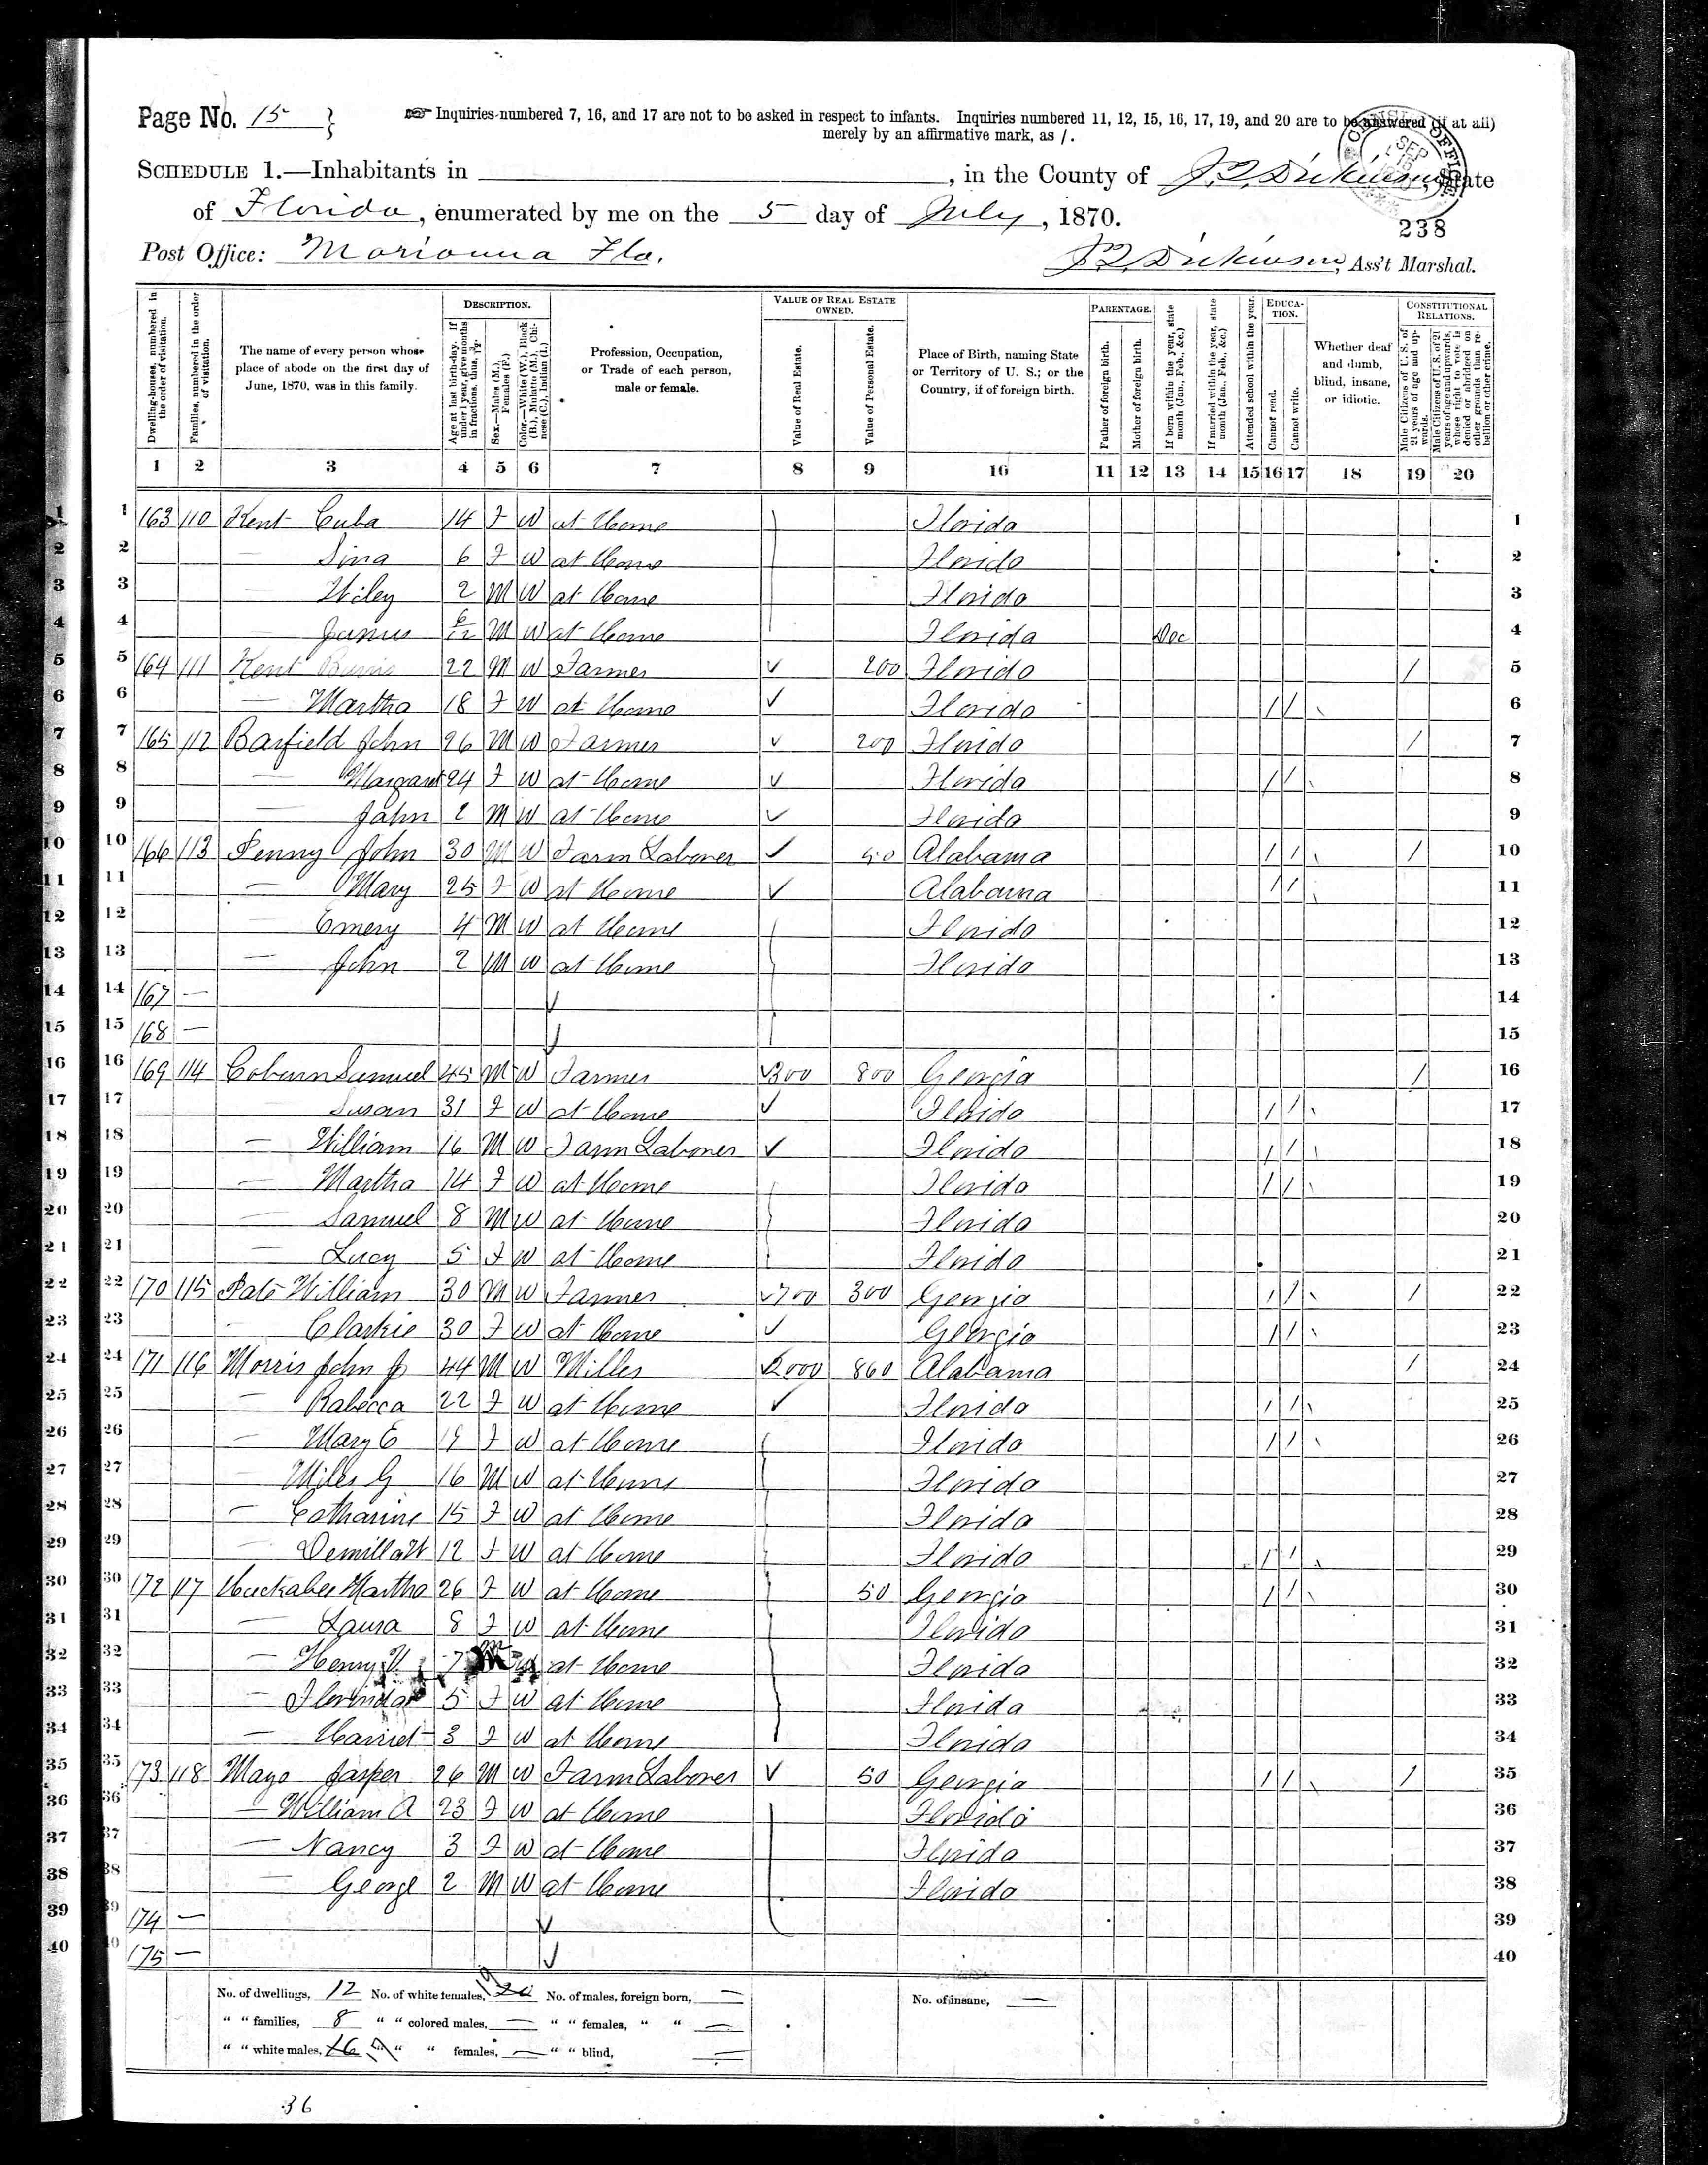 Page No. 15 }
☞ Inquiries numbered 7, 16, and 17 are not to be asked in respect to infants. Inquiries numbered 11, 12, 15, 16, 17, 19, and 20 are to be answered (if at all)
merely by an affirmative mark, as /.
SCHEDULE 1.—Inhabitants in , in the County of J. Q. Dickinson, State
of Florida, enumerated by me on the 5 day of July, 1870.
238
Post Office: Marianna Fla. J Q Dickinson, Ass't Marshal.
Dwelling-houses, numbered in the order of visitation.
Families, numbered in the order of visitation.
The name of every person whose place of abode on the first day of June, 1870, was in this family.
DESCRIPTION.
Age at last birth-day. If under 1 year, give months in fractions, thus, 3/12.
Sex.—Males (M.), Females (F.)
Color.—White (W.), Black (B.), Mulatto (M.), Chinese (C.), Indian (I.)
Profession, Occupation, or Trade of each person, male or female.
VALUE OF REAL ESTATE OWNED.
Value of Real Estate.
Value of Personal Estate.
Place of Birth, naming State or Territory of U. S.; or the Country, if of foreign birth.
PARENTAGE.
Father of foreign birth.
Mother of foreign birth.
If born within the year, state month (Jan., Feb., &c.)
If married within the year, state month (Jan., Feb., &c.)
Attended school within the year.
EDUCATION.
Cannot read.
Cannot write.
Whether deaf and dumb, blind, insane, or idiotic.
CONSTITUTIONAL RELATIONS.
Male Citizens of U. S. of 21 years of age and upwards.
Male Citizens of U. S. of 21 years of age and upwards, whose right to vote is denied or abridged on other grounds than rebellion or other crime.
1 2 3 4 5 6 7 8 9 10 11 12 13 14 15 16 17 18 19 20
1 1 163 110 Kent Cuba 14 F W at Home Florida 1
2 2 — Sina 6 F W at Home Florida 2
3 3 — Wiley 2 M W at Home Florida 3
4 4 — 6/12 M W at Home Florida Dec 4
5 5 164 111 Kent 22 M W Farmer ✓ 200 Florida / 5
6 6 — Martha 18 F W at Home ✓ Florida / / 6
7 7 165 112 Barfield John 26 M W Farmer ✓ 200 Florida / 7
8 8 — Margaret 24 F W at Home ✓ Florida / / 8
9 9 — John 2 M W at Home ✓ Florida 9
10 10 166 113 Penny John 30 M W Farm Laborer ✓ 50 Alabama / / / 10
11 11 — Mary 25 F W at Home ✓ Alabama / / 11
12 12 — Emery 4 M W at Home Florida 12
13 13 — John 2 M W at Home Florida 13
14 14 167 — ✓ 14
15 15 168 — ✓ 15
16 16 169 114 Coburn Samuel 45 M W Farmer ✓300 800 Georgia / 16
17 17 Susan 31 F W at Home ✓ Florida / / 17
18 18 — William 16 M W Farm Laborer ✓ Florida / / 18
19 19 — Martha 14 F W at Home Florida / / 19
20 20 — Samuel 8 M W at Home Florida 20
21 21 — Lucy 5 F W at Home Florida 21
22 22 170 115 Pate William 30 M W Farmer ✓700 300 Georgia / / / 22
23 23 — Clarkie 30 F W at Home ✓ Georgia / / 23
24 24 171 116 Morris John J 44 M W Miller ✓2000 860 Alabama / 24
25 25 — Rabecca 22 F W at Home ✓ Florida / / 25
26 26 — Mary E 19 F W at Home Florida / / 26
27 27 — Miles G 16 M W at Home Florida 27
28 28 — Catharine 15 F W at Home Florida 28
29 29 — 12 F W at Home Florida / / 29
30 30 172 117 Huckabee Martha 26 F W at Home 50 Georgia / / 30
31 31 — Laura 8 F W at Home Florida 31
32 32 — Henry 7 M W at Home Florida 32
33 33 — Florinda 5 F W at Home Florida 33
34 34 — Harriet 3 F W at Home Florida 34
35 35 173 118 Mayo Jasper 26 M W Farm Laborer ✓ 50 Georgia / / / 35
36 36 — William A 23 F W at Home Florida 36
37 37 — Nancy 3 F W at Home Florida 37
38 38 — George 2 M W at Home Florida 38
39 39 174 — ✓ 39
40 40 175 — ✓ 40
No. of dwellings, 12 No. of white females, 19 No. of males, foreign born, — No. of insane, —
" " families, 8 " " colored males, — " " females, " " —
" " white males, 16 " " females, — " " blind, —
36